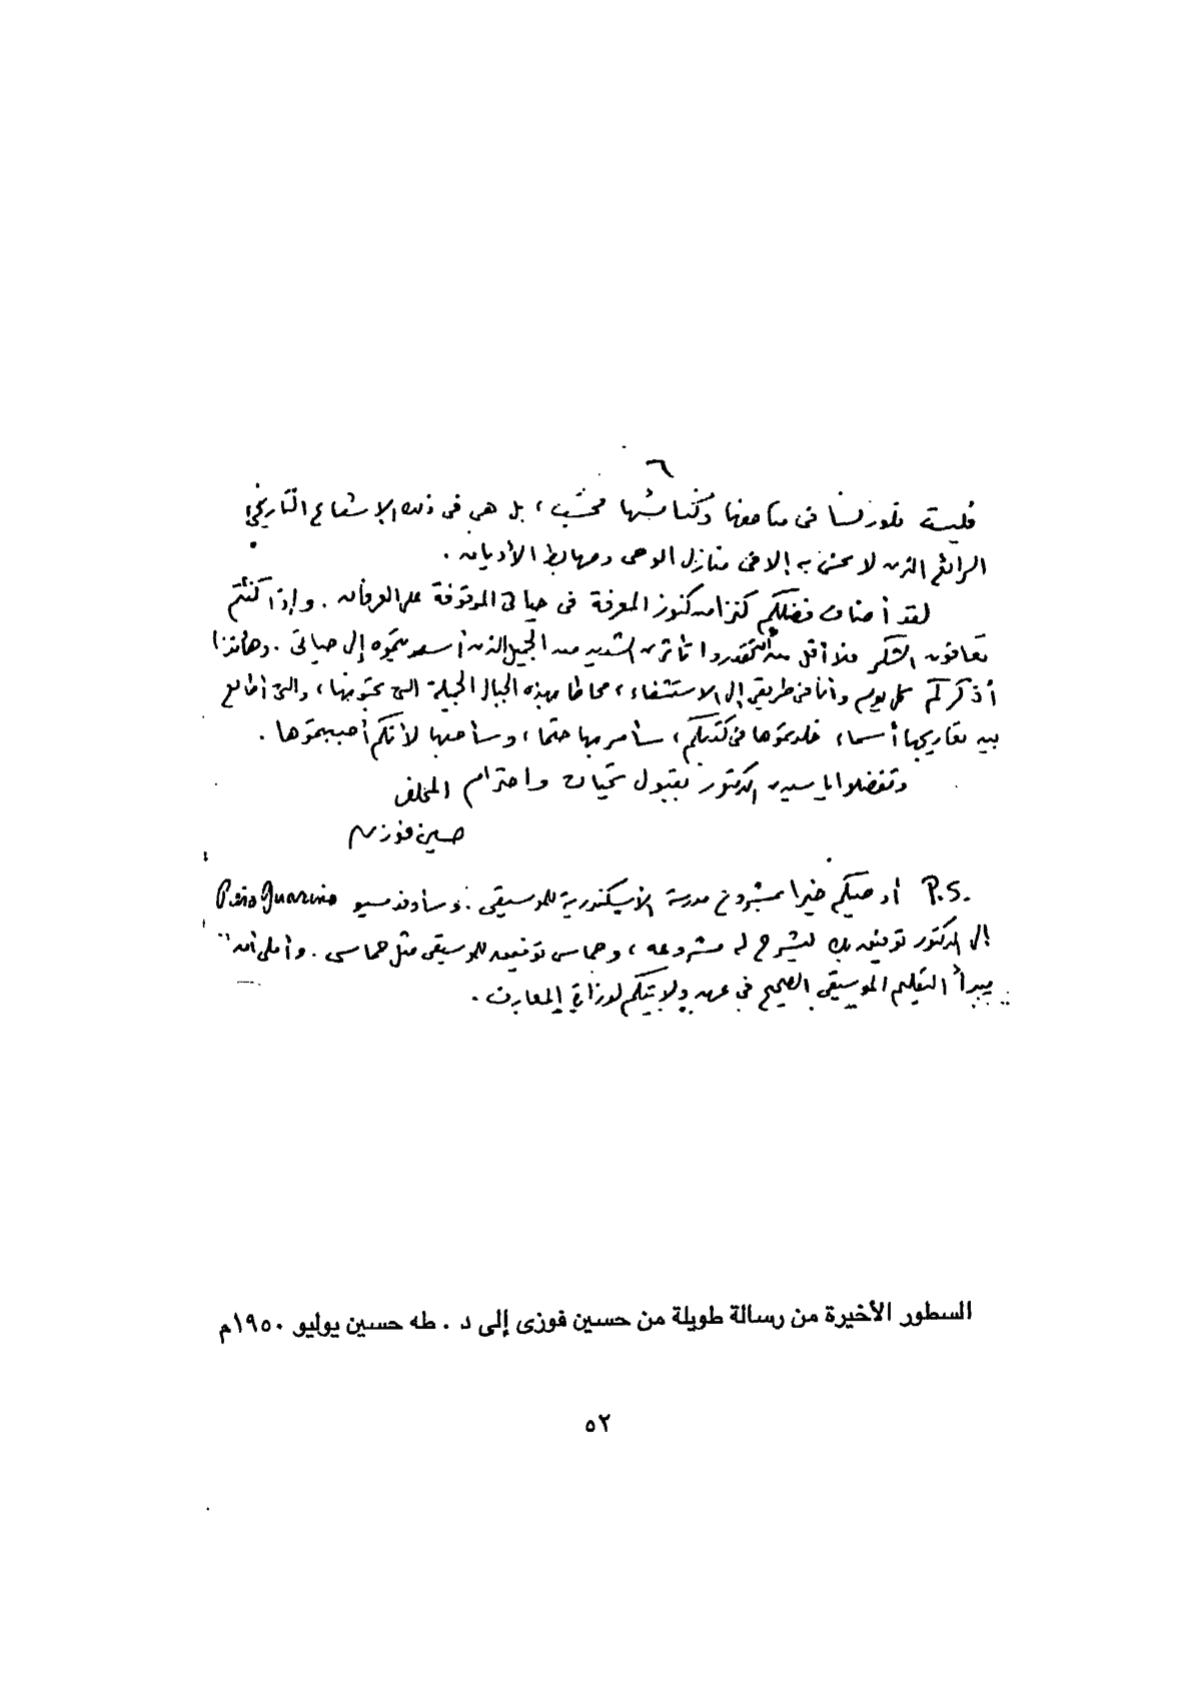 ٦
فليست فلورنسا في متاحفها وكنائسها فحسب، بل هي في ذلك الإشعاع التاريخي
الرائع الذى لا يحس به إلا في منازل الوحى ومهابط الأديان.
لقد أضاف فضلكم كنزا من كنوز المعرفة فى حياتى الموقوفة على العرفان. وإذا كنتم
تعافون الشكر فلا أقل من أن تقدروا تأثرى الشديد من الجميل الذى أسديتموه إلى حياتى. وهأنذا
أذكركم كل يوم وأنا في طريقي إلى الاستشفاء، محاطا بهذه الجبال الجميلة التى تحبونها، والتى أطالع
بين تعاريجها أسماء خلدتموها فى كتبكم، سأمر بها حتما، وسأحبها لأنكم أحببتموها.
وتفضلوا يا سيدى الدكتور بقبول تحيات واحترام المخلص
حسين فوزى
P.S. أوصيكم خيرا بمشروع مدرسة الأسكندرية للموسيقى. وسأوفد مسيو Piero Guarino
إلى الدكتور توفيق بك ليشرح له مشروعه، وحماس توفيق للموسيقى مثل حماسى. وأملى أن
يبدأ التعليم الموسيقى الصحيح فى عهد ولايتكم لوزارة المعارف.
السطور الأخيرة من رسالة طويلة من حسين فوزى إلى د . طه حسين يوليو ١٩٥٠م
٥٢